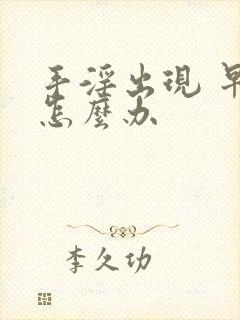 手淫出現 早
怎麼办
李久功